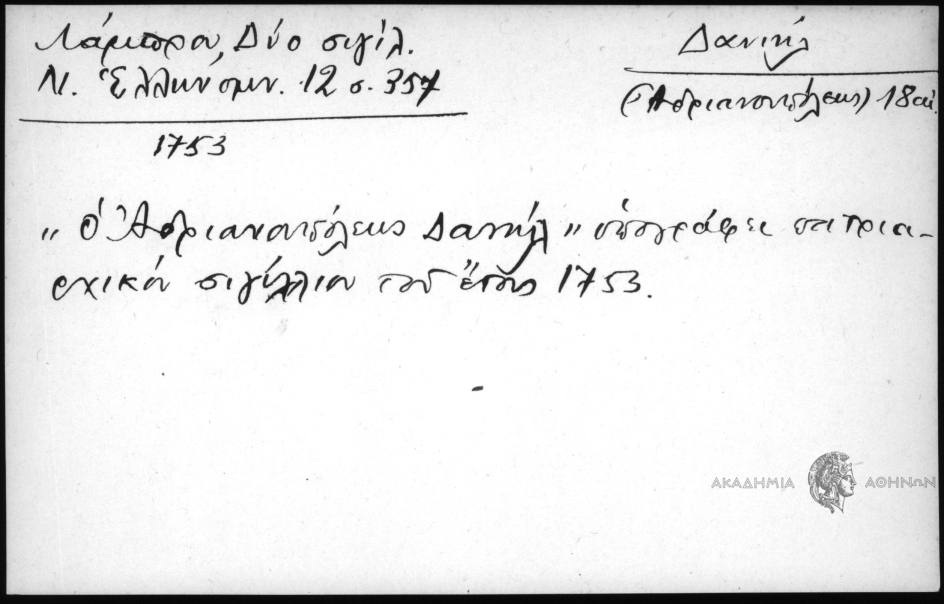 Λάμπρου, Δύο σιγίλ.
Ν. Ἑλληνομν. 12 σ. 357
1753
Δανιήλ
(Ἀδριανουπόλεως) 18 αἰ.
„ Ὁ Ἀδριανουπόλεως Δανιήλ „ ὑπογράφει πατρια-
ρχικόν σιγίλλιον τοῦ ἔτους 1753.
ΑΚΑΔΗΜΙΑ ΑΘΗΝΩΝ